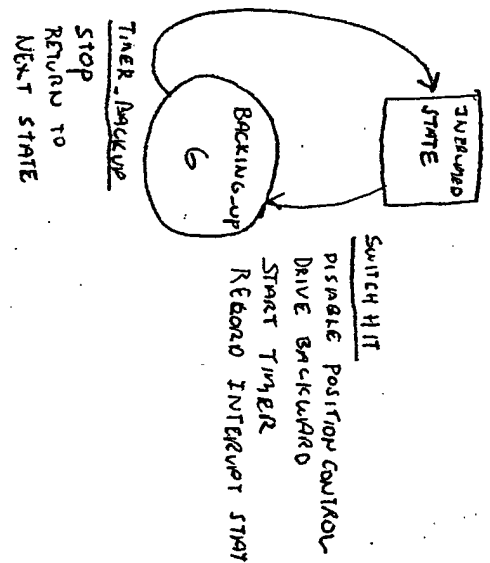 STATE
SWITCH HIT
DISABLE POSITION CONTROL
DRIVE BACKWARD
START TIMER
RECORD INTERUPT STAT
BACKING_UP
6
TIMER_BACKUP
STOP
RETURN TO
NEXT STATE